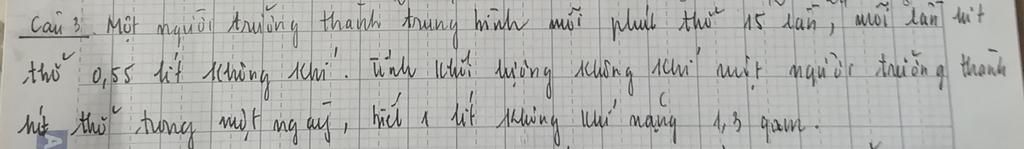 Câu 3. Một người trưởng thành trung bình mỗi phút thở 15 lần, mỗi lần hít
thở 0,55 lít không khí. Tính khối lượng không khí một người trưởng thành
hít thở trong một ngày, biết 1 lít không khí nặng 1,3 gam.